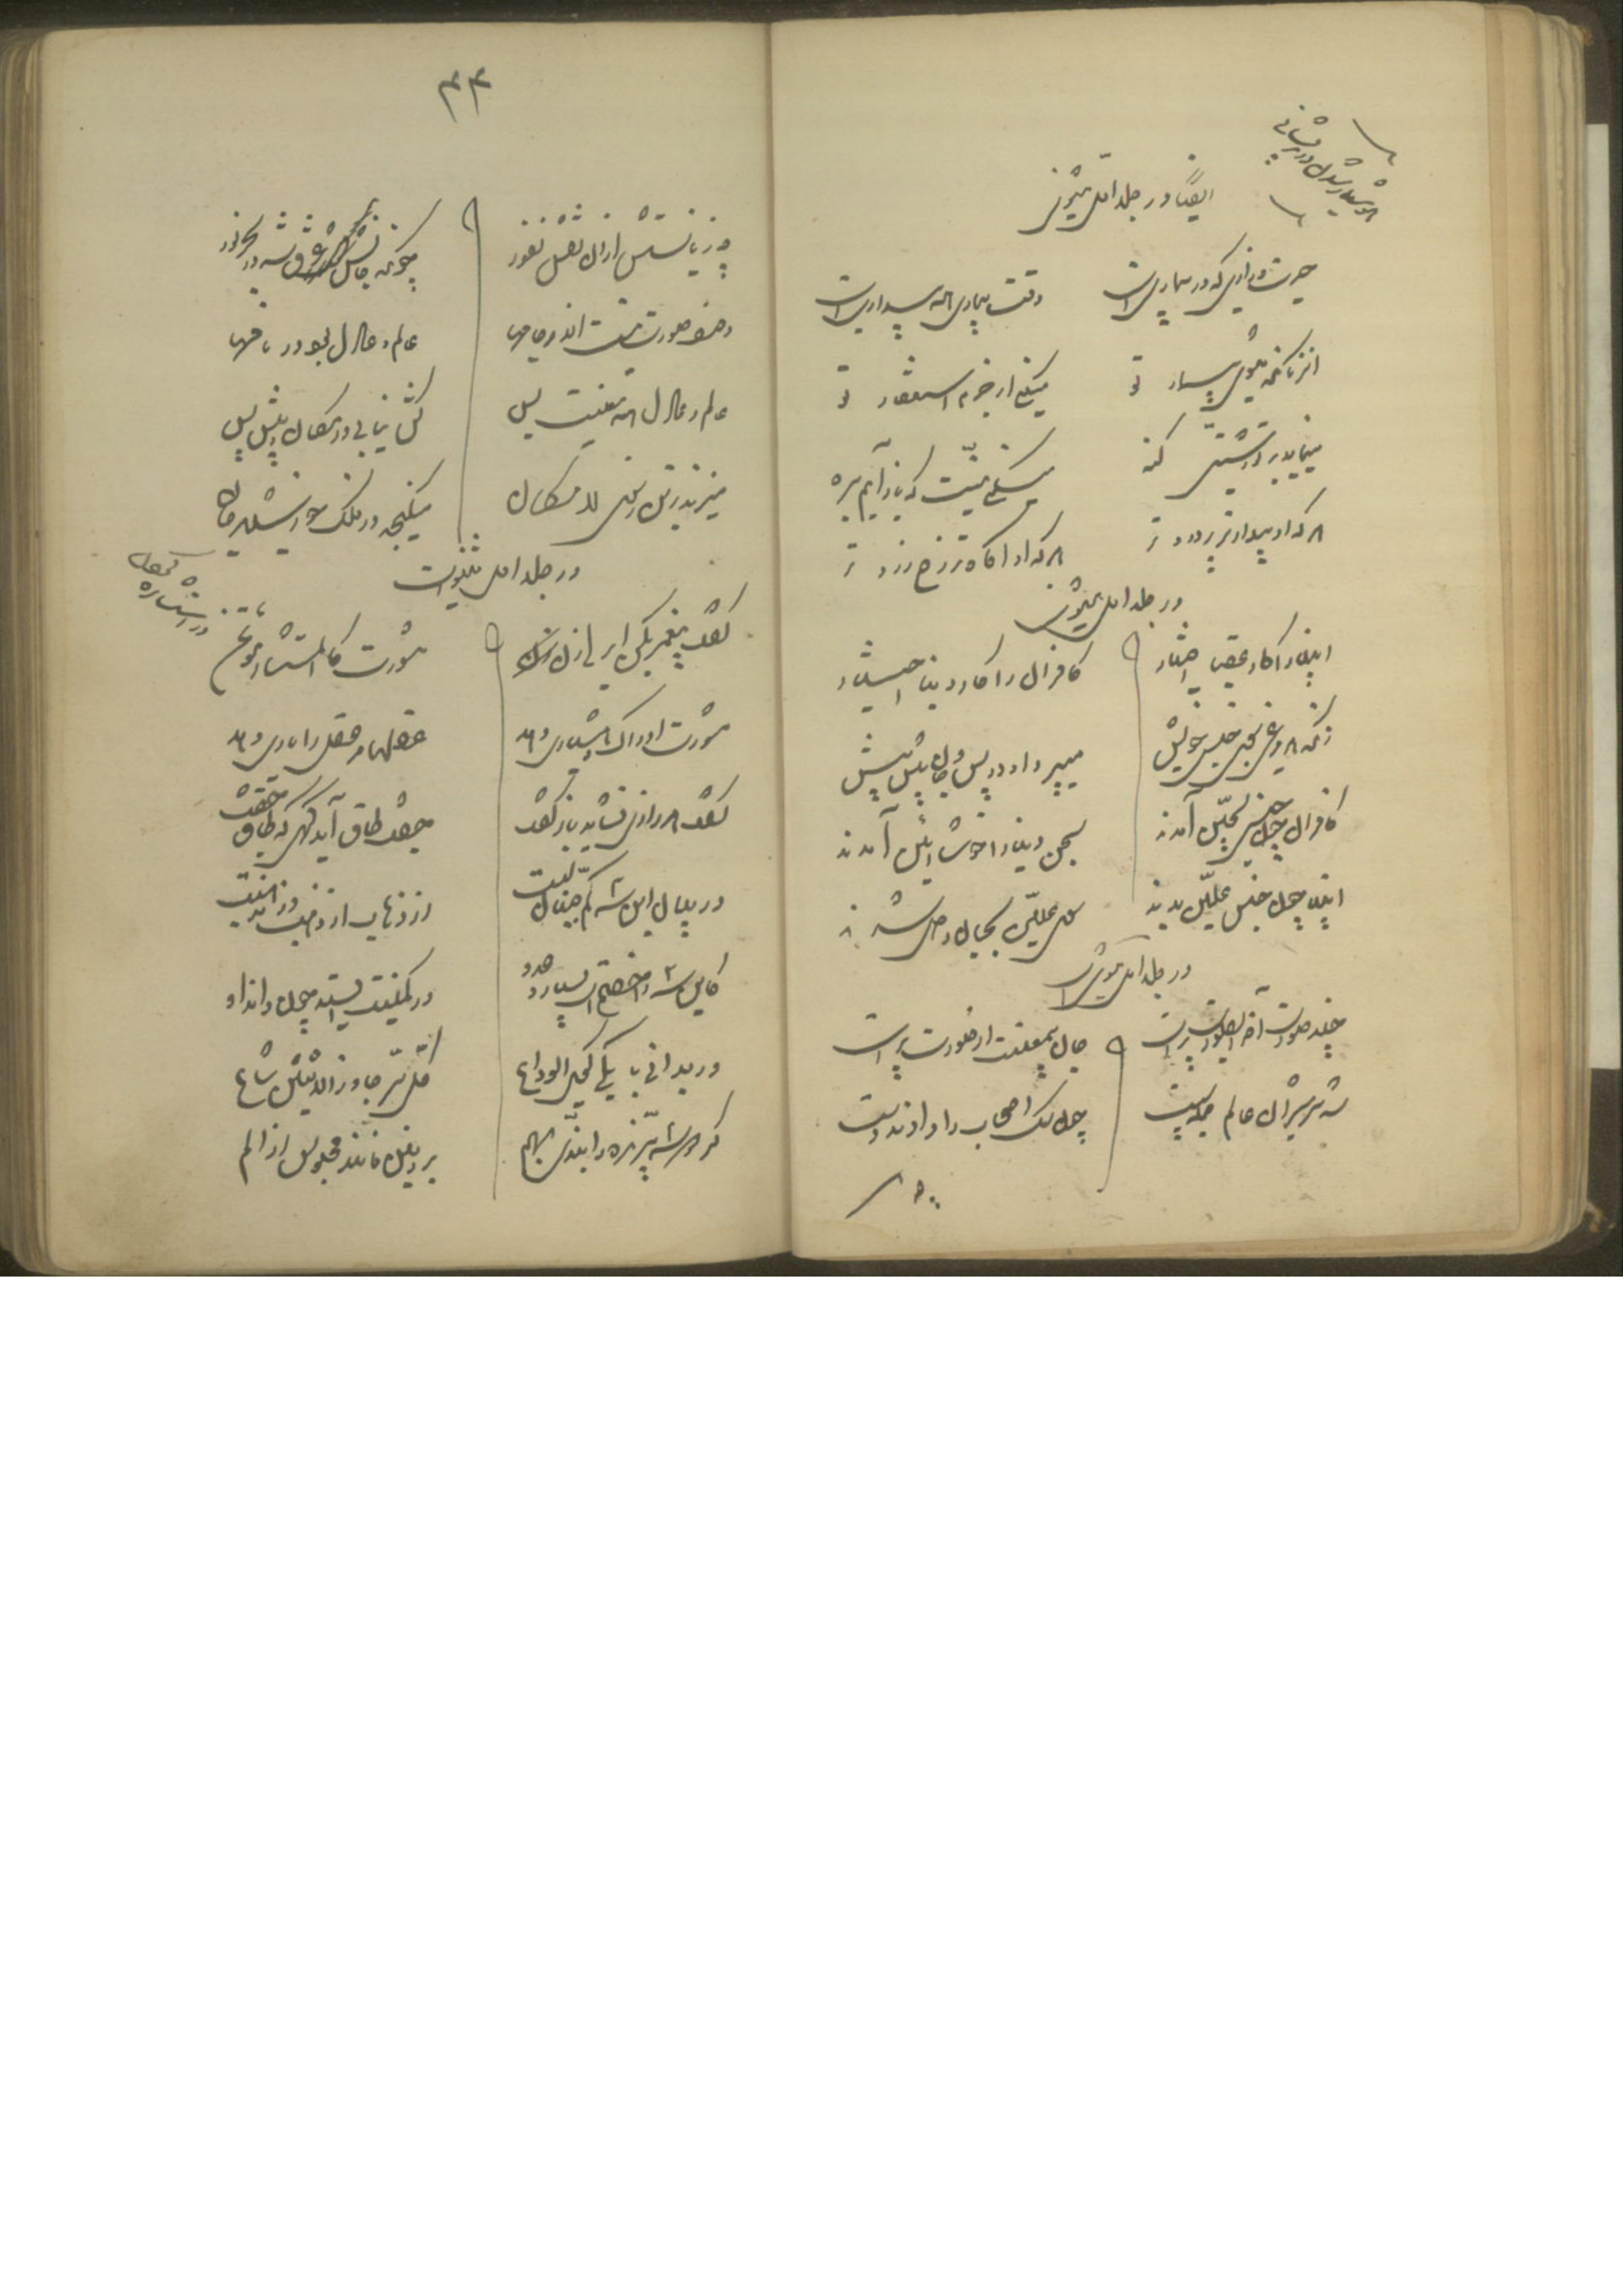 هوشیار شدن در پریشانی
ایضاً در جلد اول مثنوی
حسرت و زاری که در بیماری است
وقت بیماری همه بیداری است
آن زمان که میشوی بیمار تو
میکنی از جرم استغفار تو
مینماید بر تو زشتی گنه
میکنی نیت که باز آیم بره
هر که او بیدارتر پر دردتر
هر که او آگاه تر رخ زردتر
در جلد اول مثنوی
انبیا را کار عقبی اختیار
کافران را کار دنیا اختیار
زانکه هر مرغی بسوی جنس خویش
میپرد او در پس و جان پیش پیش
کافران چون جنس سجین آمدند
سجن دنیا را خوش آیین آمدند
انبیا چون جنس علیین بدند
سوی علیین بجان و دل شدند
در جلد اول مثنوی
چند صورت آخر ای صورت پرست
جان بی معنیت از صورت نرست
شد سر شیران عالم جمله پست
چون سگ اصحاب را دادند دست
۴۴
چه زیانستش از آن نقش نفور
چونکه جانش غرق شد در بحر نور
وصف صورت نیست اندر خامها
عالم و عادل بود در نامها
عالم و عادل همه معنیست بس
کش نیابی در مکان و پیش و پس
میزند بر تن ز سوی لامکان
مینگنجد در فلک خورشید جان
در جلد اول مثنوی است
گفت پیغمبر بکن ای رای زن
مشورت کالمستشار مؤتمن
مشورت ادراک و هشیاری دهد
عقلها مر عقل را یاری دهد
گفت هر رازی نشاید باز گفت
جفت طاق آید گهی گه طاق جفت
در بیان این سه کم جنبان لبت
از ذهاب و از ذهب وز مذهبت
کاین سه را خصم است بسیار و عدو
در کمینت ایستد چون داند او
ور بدانی با یکی گوی الوداع
کل سر جاوز الاثنین شاع
گر دو سه پرنده را بندی بهم
بر زمین مانند محبوس از الم